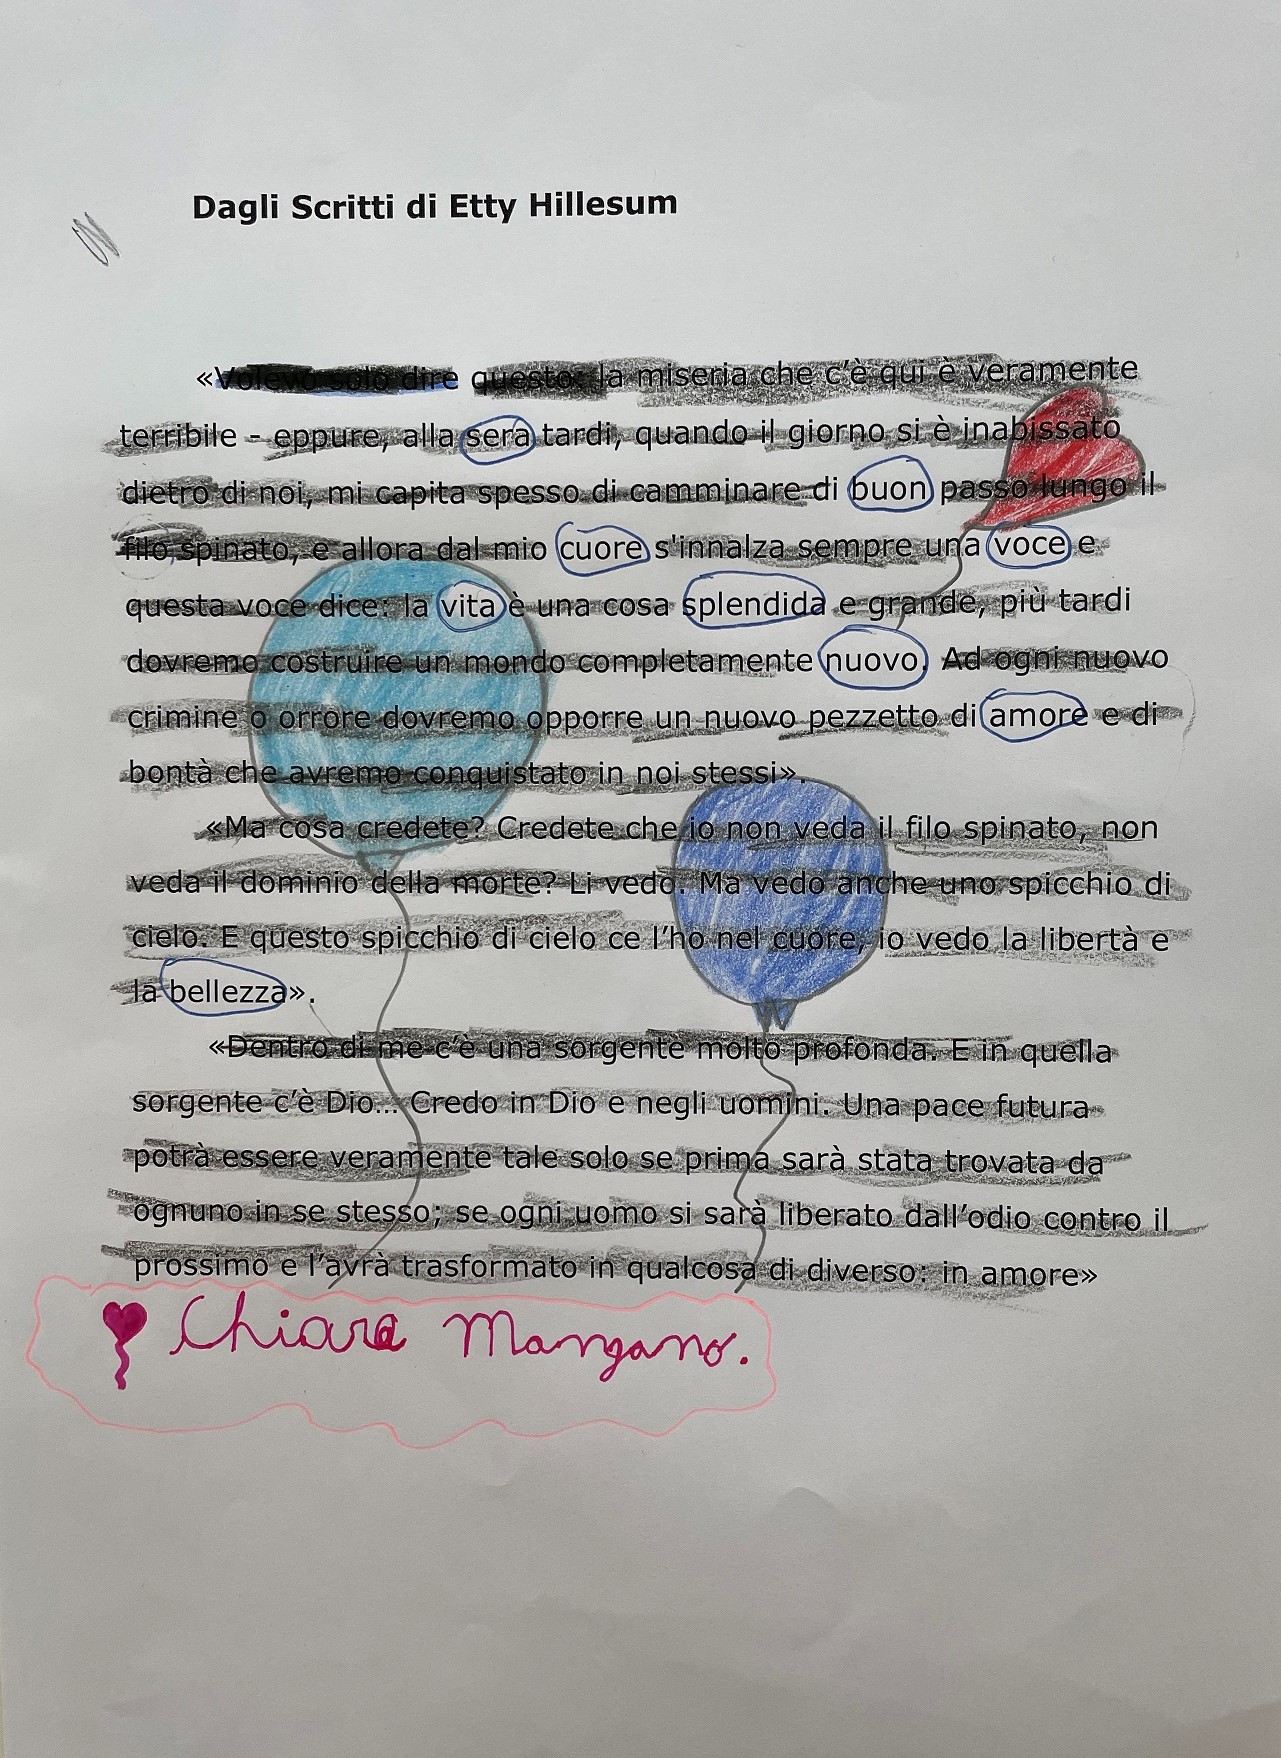 Dagli Scritti di Etty Hillesum
«Volevo solo dire questo: la miseria che c'è qui è veramente
terribile - eppure, alla sera tardi, quando il giorno si è inabissato
dietro di noi, mi capita spesso di camminare di buon passo lungo il
filo spinato, e allora dal mio cuore s'innalza sempre una voce e
questa voce dice: la vita è una cosa splendida e grande, più tardi
dovremo costruire un mondo completamente nuovo. Ad ogni nuovo
crimine o orrore dovremo opporre un nuovo pezzetto di amore e di
bontà che avremo conquistato in noi stessi».
«Ma cosa credete? Credete che io non veda il filo spinato, non
veda il dominio della morte? Li vedo. Ma vedo anche uno spicchio di
cielo. E questo spicchio di cielo ce l'ho nel cuore, io vedo la libertà e
la bellezza».
«Dentro di me c'è una sorgente molto profonda. E in quella
sorgente c'è Dio... Credo in Dio e negli uomini. Una pace futura
potrà essere veramente tale solo se prima sarà stata trovata da
ognuno in se stesso; se ogni uomo si sarà liberato dall'odio contro il
prossimo e l'avrà trasformato in qualcosa di diverso: in amore»
Chiara Mangano.